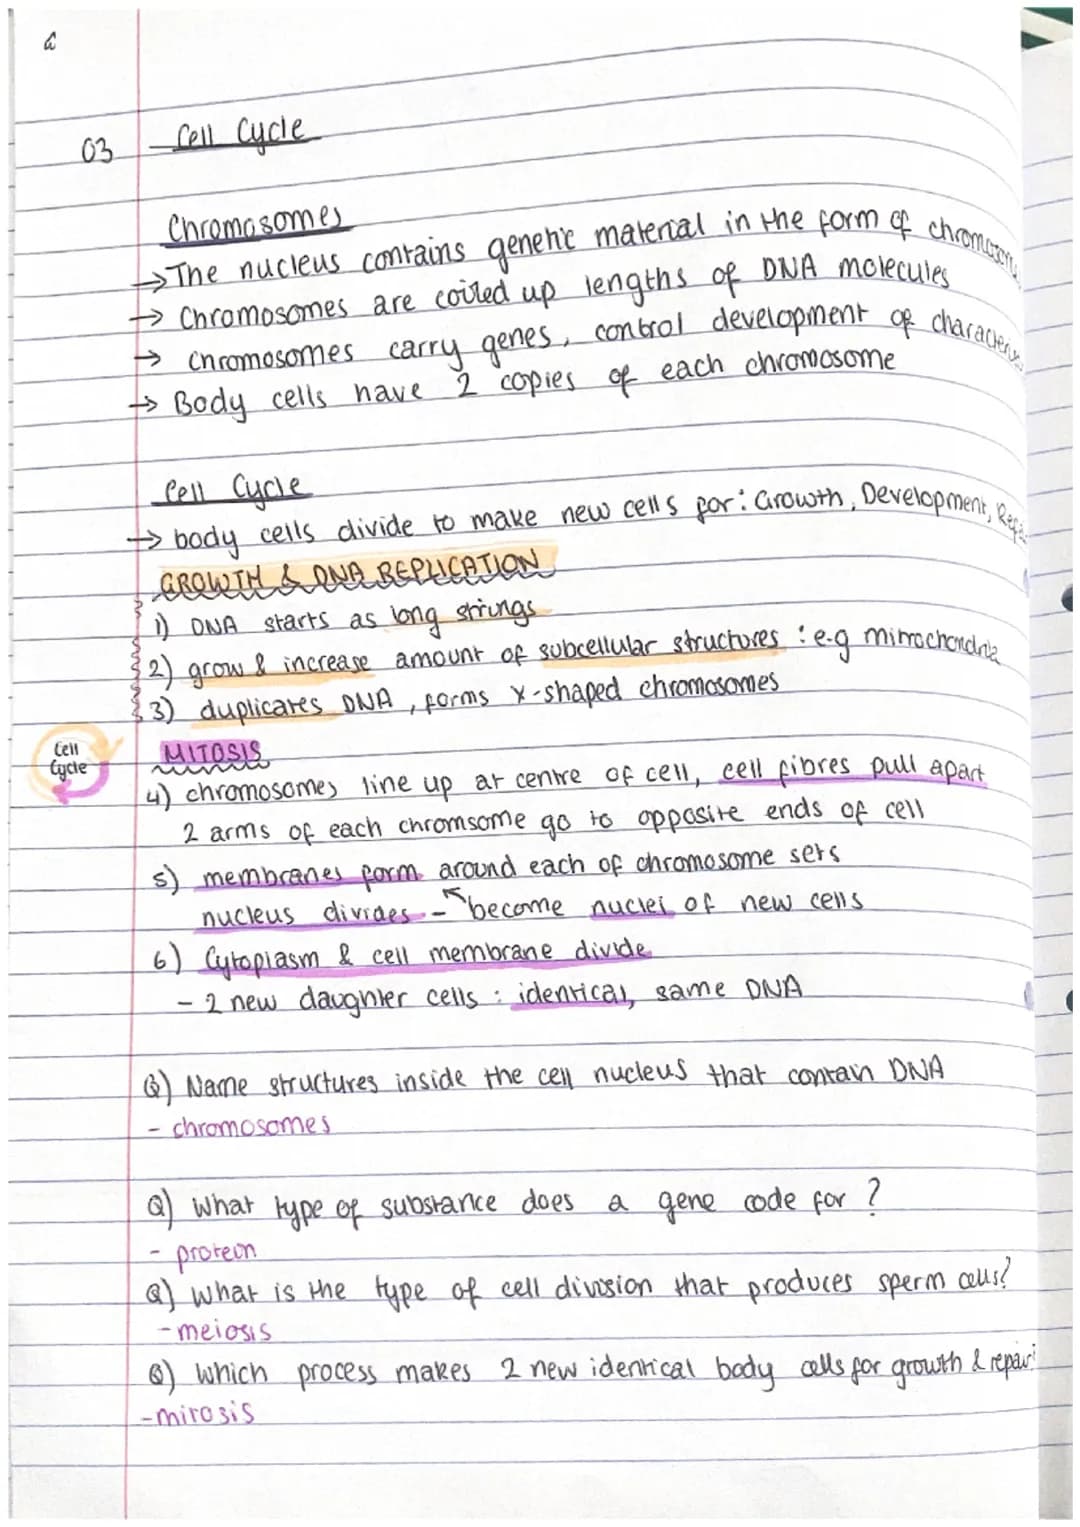 03 Cell Cycle
Chromosomes
→ The nucleus contains genetic material in the form of chromosomes
→ Chromosomes are coiled up lengths of DNA molecules
→ Chromosomes carry genes, control development of
→ Body cells have 2 copies of each chromosome
Cell Cycle
→ body cells divide to make new cells for: Growth, Development, Repair
GROWTH & DNA REPLICATION
1) DNA starts as long strings
2) grow & increase amount of subcellular structures : e.g mitochondria
3) duplicates DNA, forms X-shaped chromosomes
Cell
Cycle
MITOSIS
4) chromosomes line up at centre of cell, cell fibres pull apart
2 arms of each chromsome go to opposite ends of cell
5) membranes form around each of chromosome sets
nucleus divides - become nuclei of new cells
6) Cytoplasm & cell membrane divide
- 2 new daughter cells : identical, same DNA
Q) Name structures inside the cell nucleus that contain DNA
- chromosomes
Q) What type of substance does a gene code for ?
- protein
Q) What is the type of cell division that produces sperm cells?
- meiosis
Q) Which process makes 2 new identical body cells for growth & repair?
- mitosis